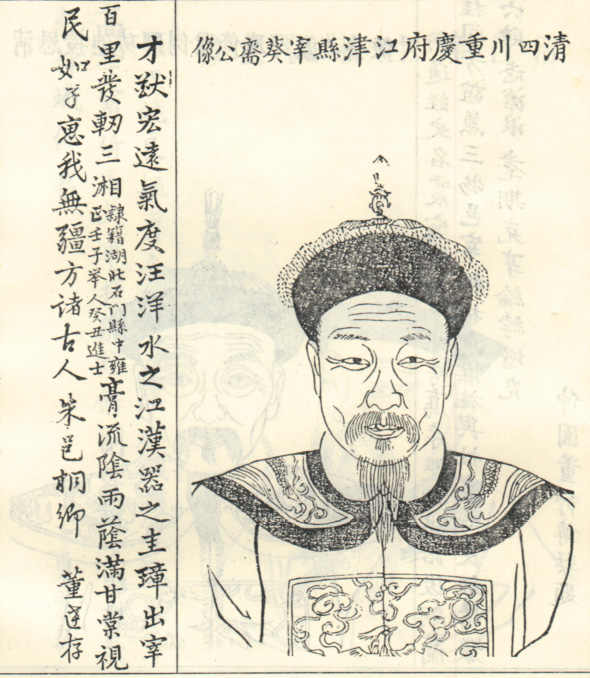 清四川重慶府江津縣宰葵齋公像
才猷宏遠氣度汪洋水之江漢器之圭璋出宰
百里發軔三湘隸籍湖北石門縣中雍
正壬子举人癸丑進士膏流陰雨蔭滿甘棠視
民如子惠我無疆方諸古人朱邑桐鄉 董